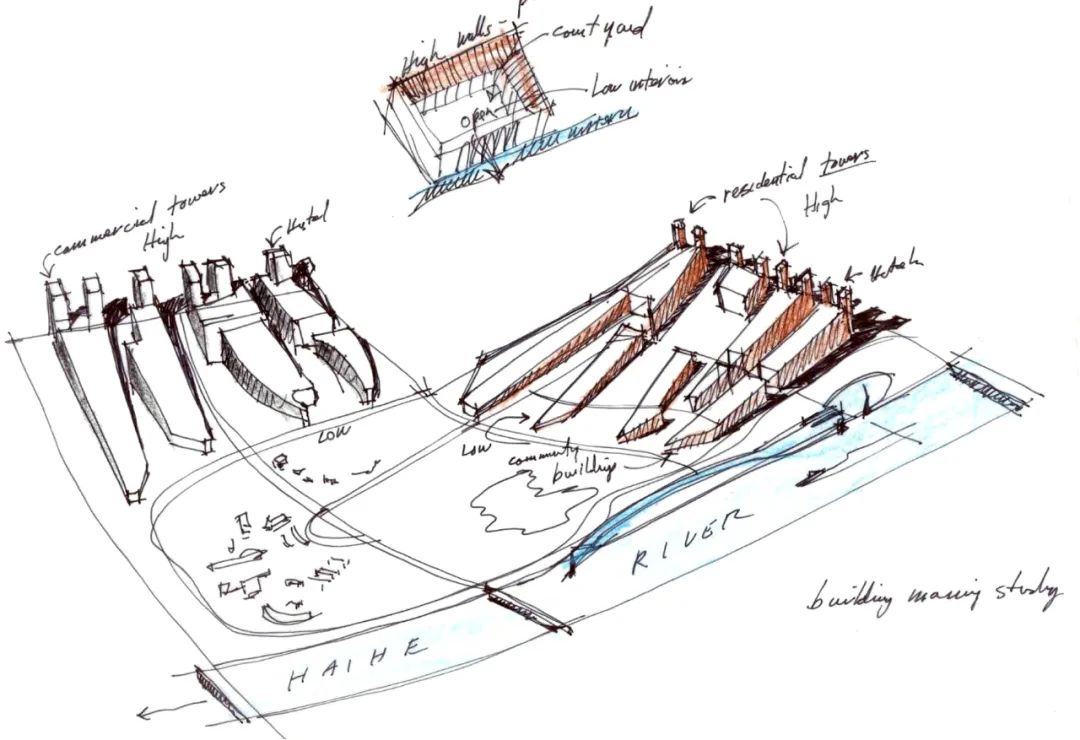 High walls -
courtyard
Low interior
open
commercial towers
High
Hotel
residential towers
High
Hotel
LOW
LOW
community
building
RIVER
HAIHE
building massing study